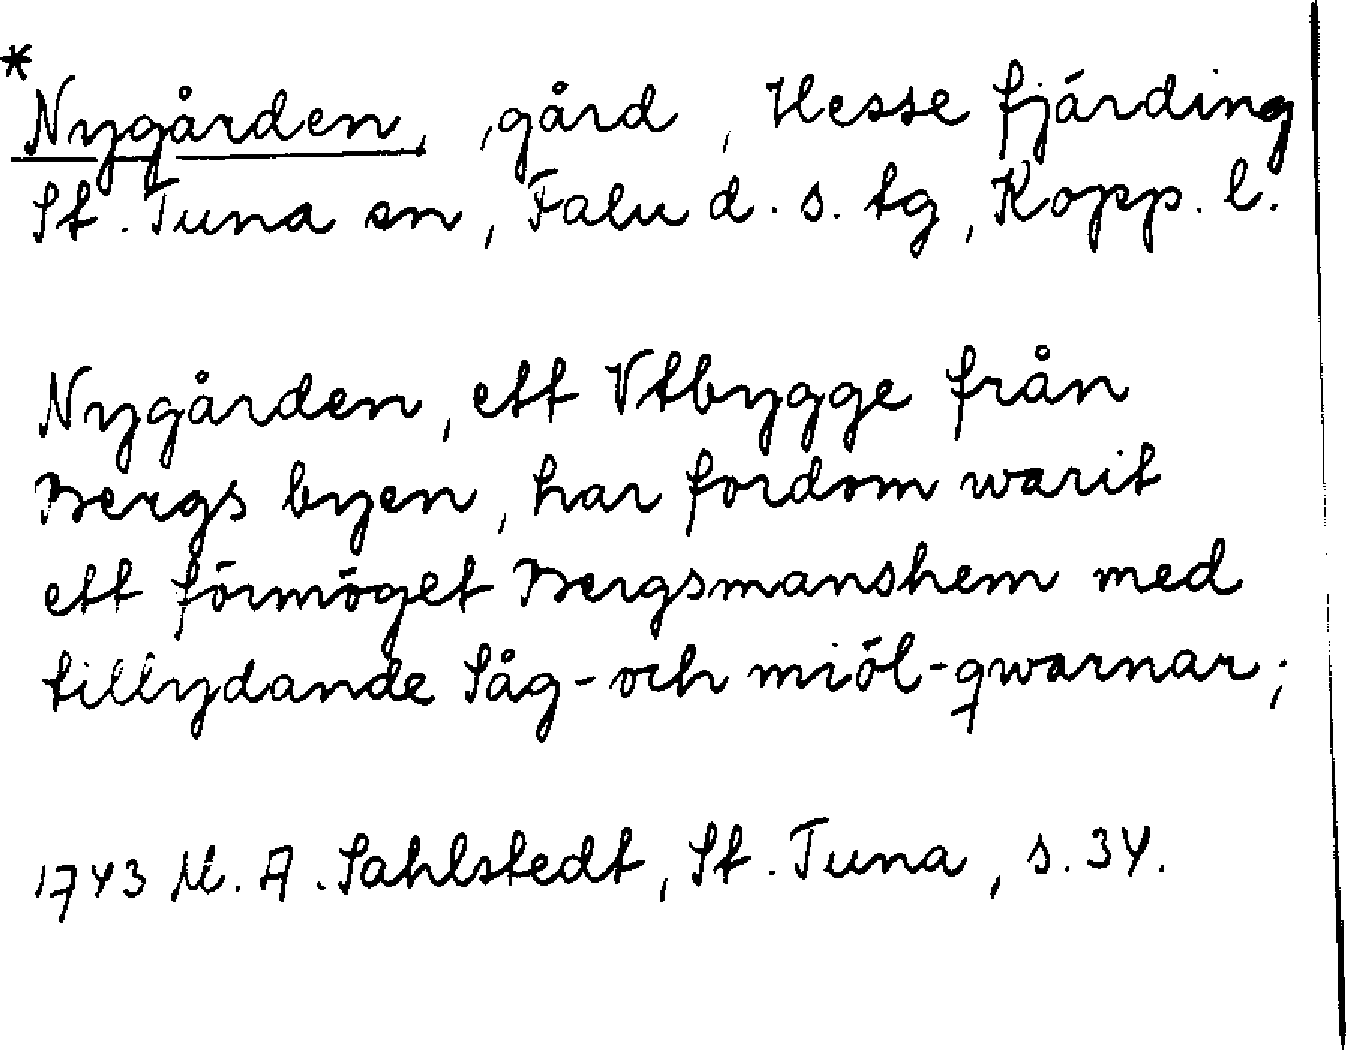 *
Nygården, , gård , Hesse fjärding
St. Tuna sn, Falu d. s. tg, Kopp. l.
Nygården, ett Vtbygge från
Bergs byen, har fordom warit
ett förmöget Bergsmanshem med
tillydande Såg- och miöl-qwarnar;
1743 M. A. Sahlstedt, St. Tuna, s. 34.